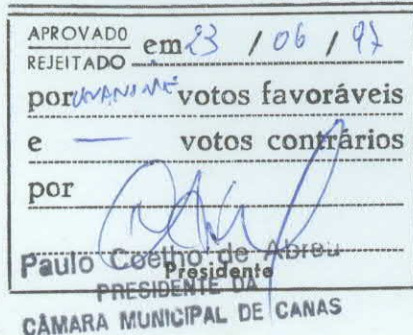 APROVADO
REJEITADO em 23 / 06 / 97
por unanime votos favoráveis
e — votos contrários
por
Presidente
Paulo Coelho de Abreu
PRESIDENTE DA
CÂMARA MUNICIPAL DE CANAS